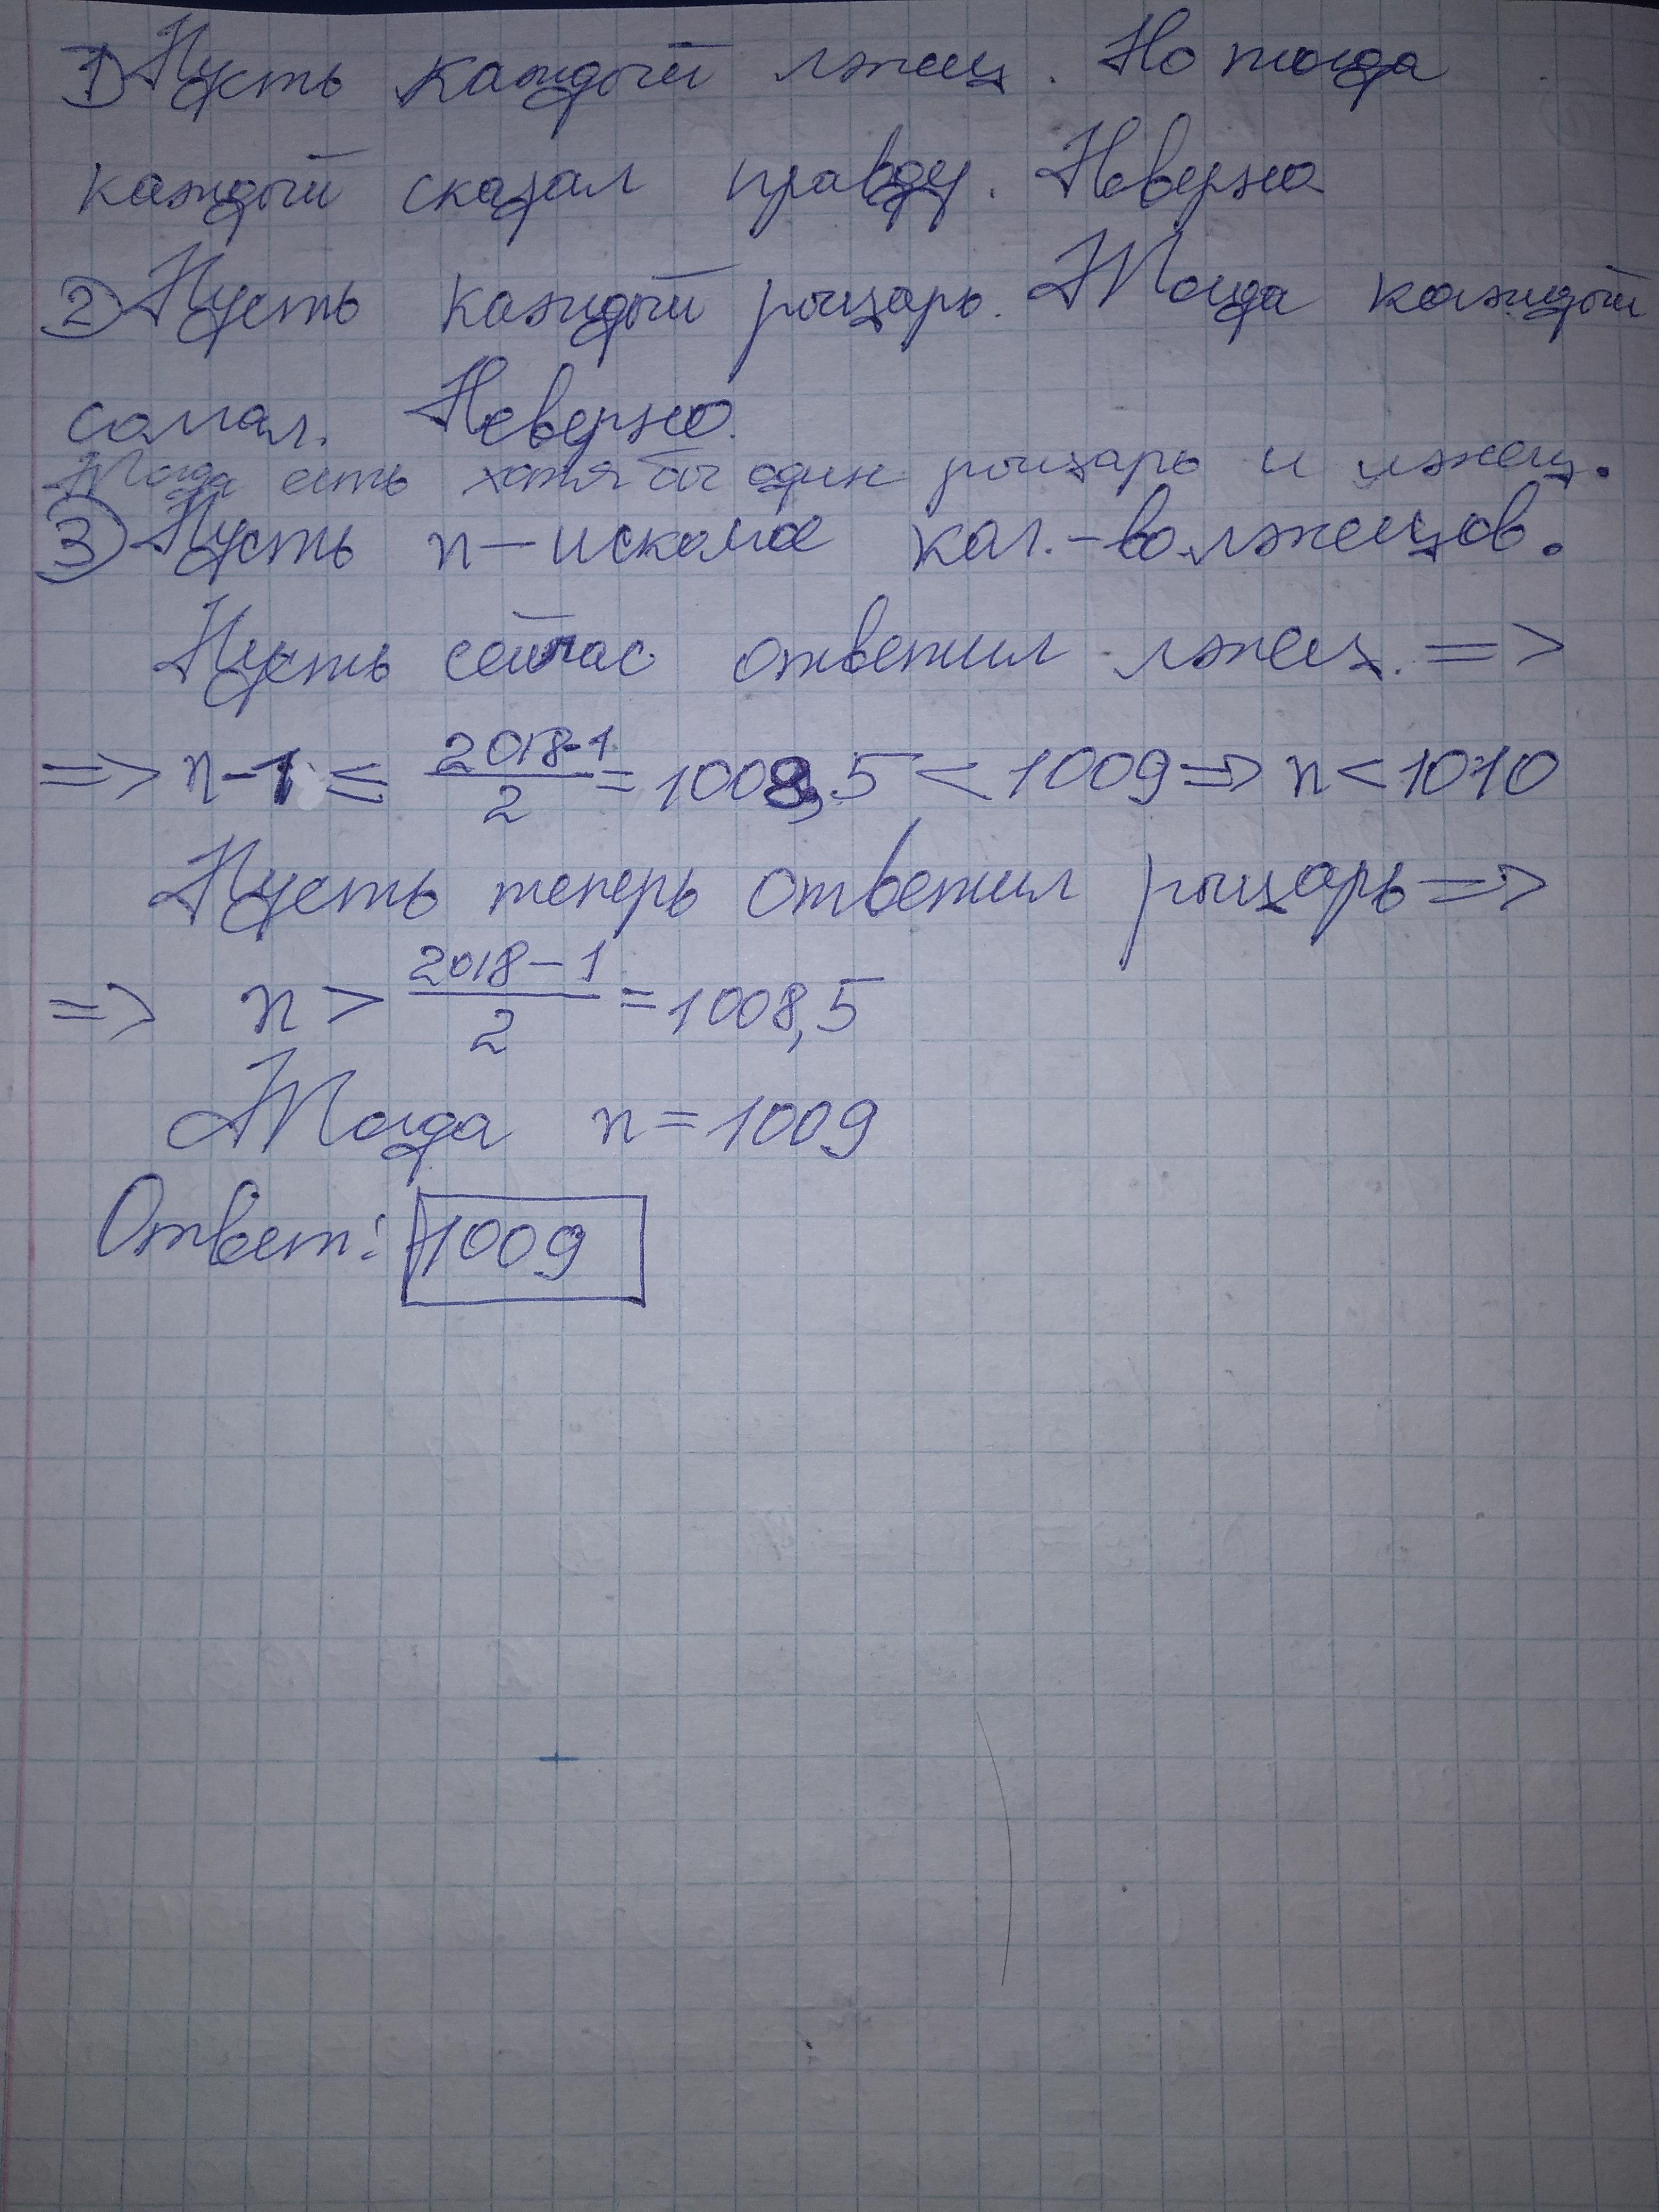 1) Пусть каждый лжец. Но тогда
каждый сказал правду. Неверно
2) Пусть каждый рыцарь. Тогда каждый
солгал. Неверно.
Тогда есть хотя бы один рыцарь и лжец.
3) Пусть n – искомое кол.-во лжецов.
Пусть сейчас ответил лжец. =>
=> n-1 ≤ 2018-1/2 = 1008,5 < 1009 => n < 1010
Пусть теперь ответил рыцарь =>
=> n > 2018-1/2 = 1008,5
Тогда n = 1009
Ответ: 1009